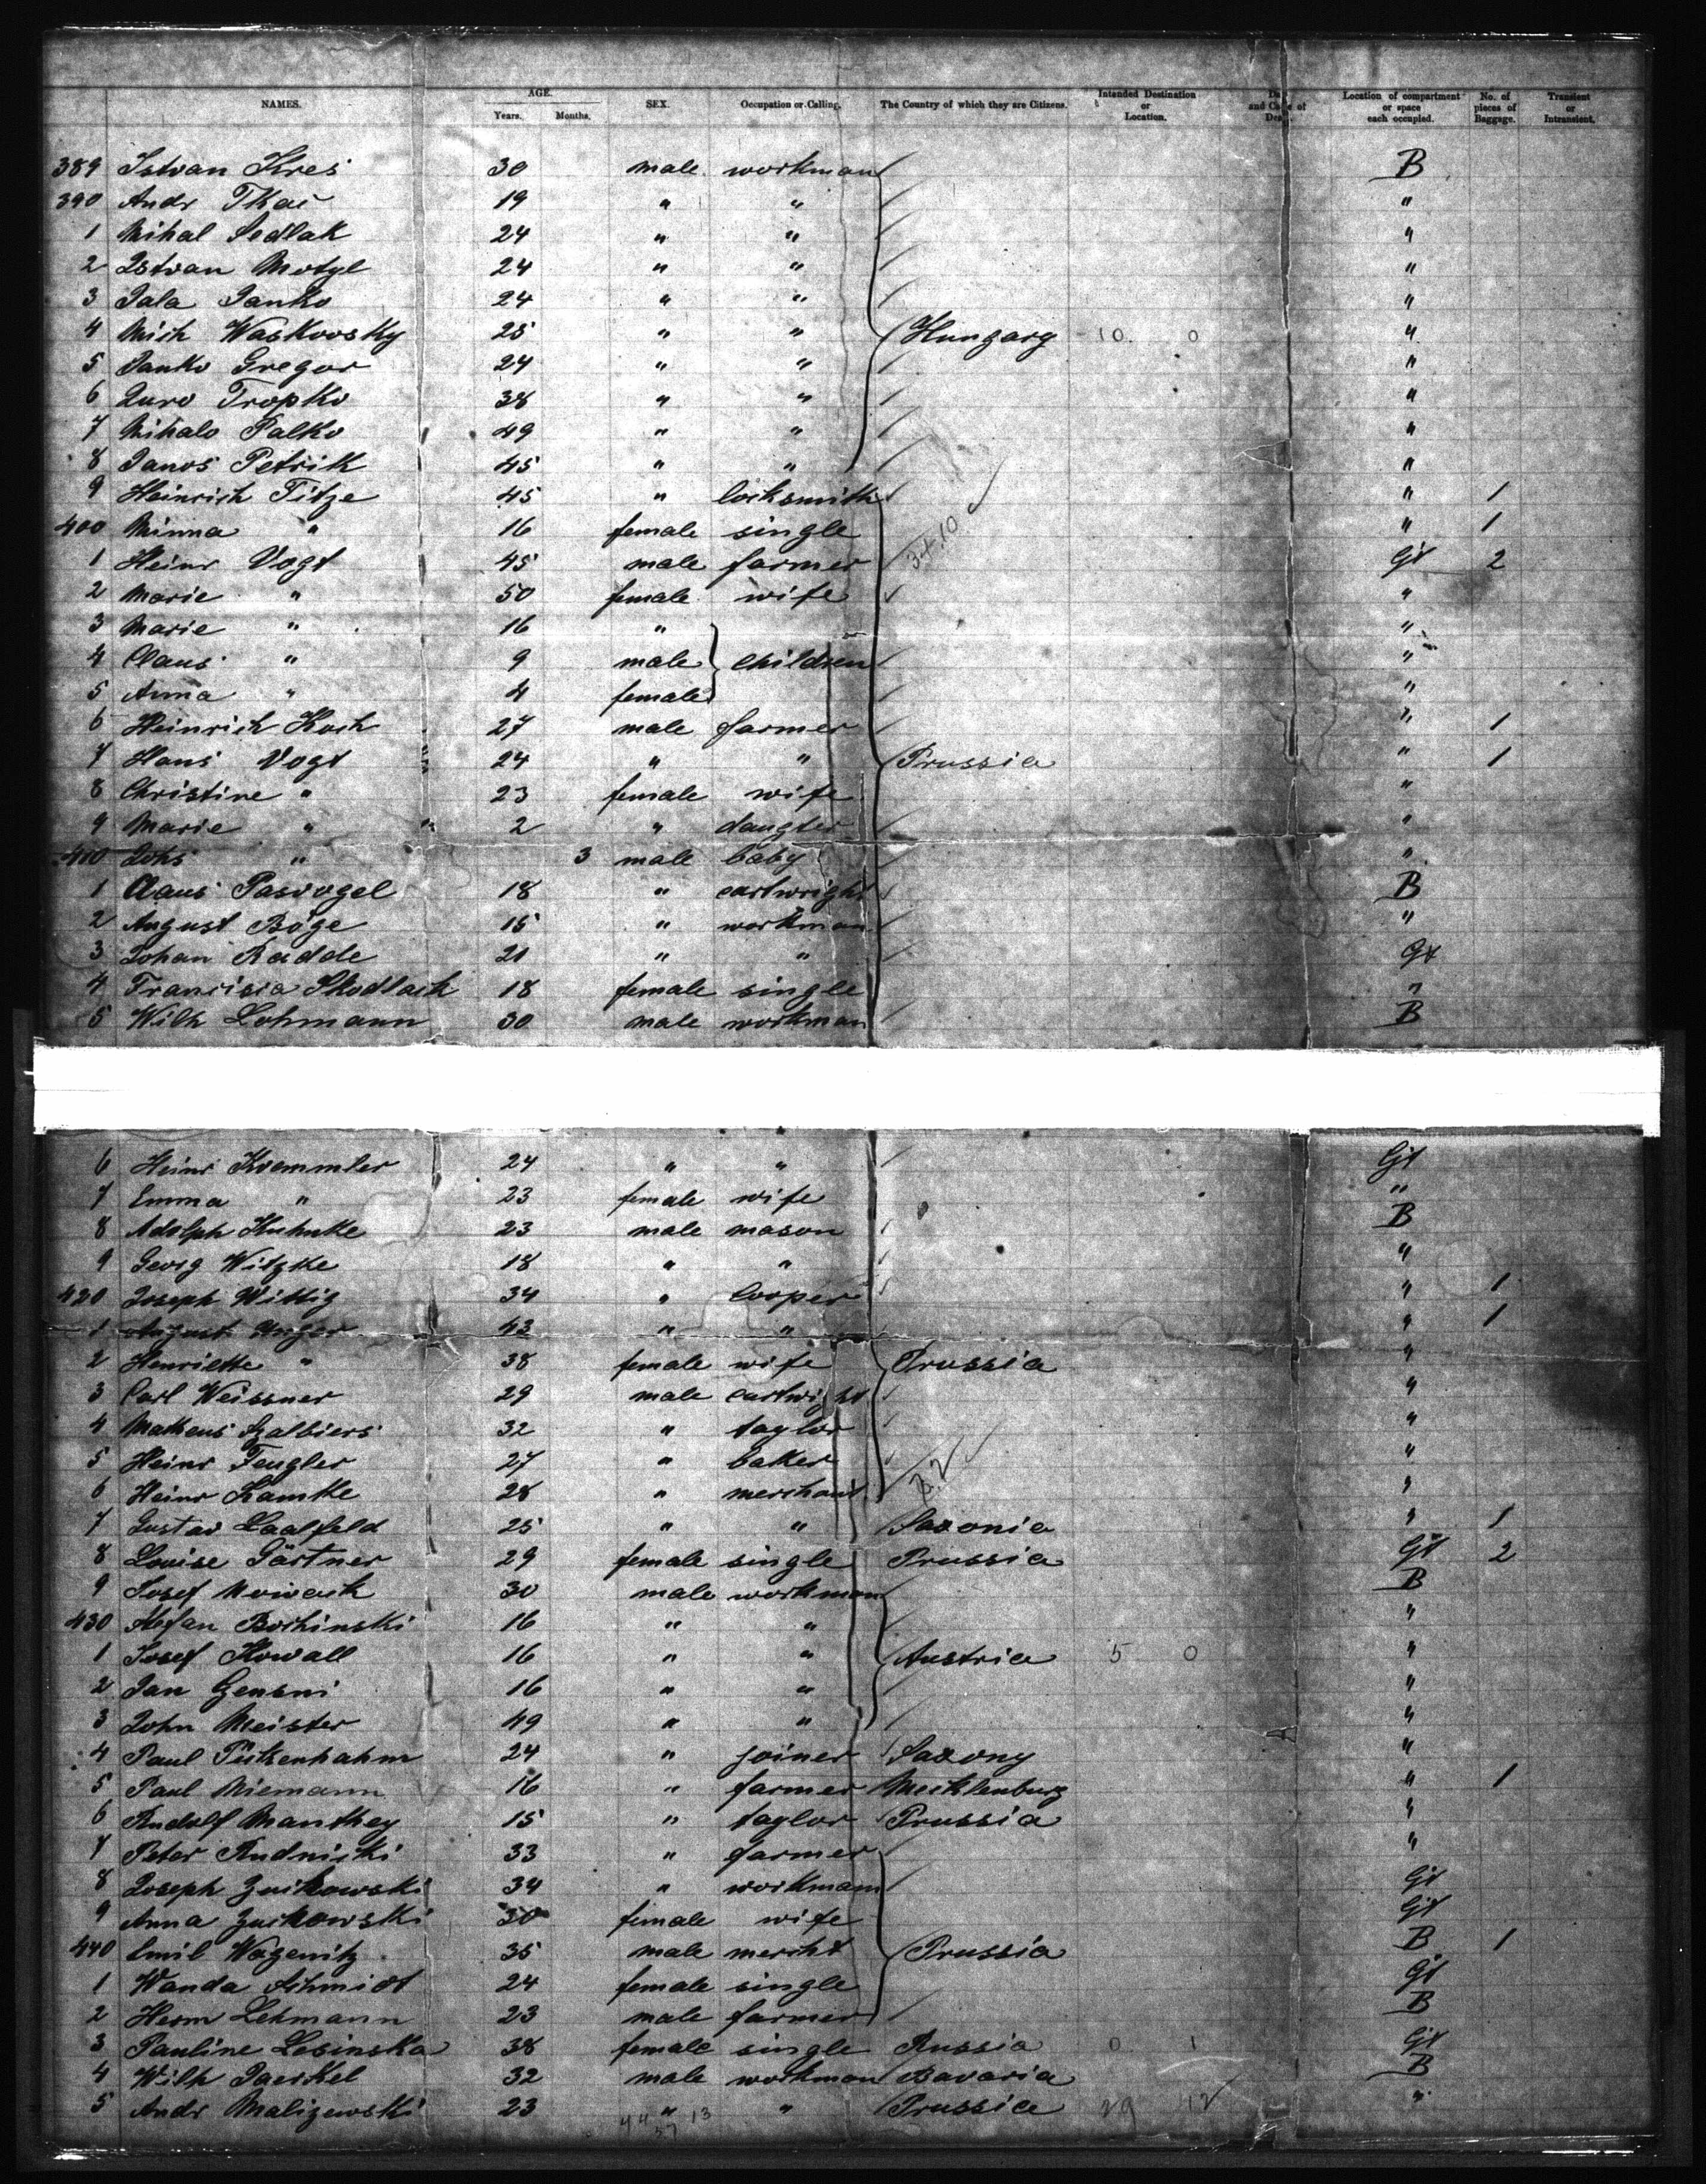 NAMES. AGE. Years. Months. SEX. Occupation or Calling. The Country of which they are Citizens. Intended Destination or Location. Location of compartment or space each occupied. No. of pieces of Baggage. Transient or Intransient.
389 Istvan Kres 30 male workman B
390 Andr Tkac 19 " " "
1 Mihal Sedlak 24 " " "
2 Istvan Motyl 24 " " "
3 Jala Janko 24 " " "
4 Mich Waskovsky 25 " " Hungary 10 0 "
5 Janko Gregor 24 " " "
6 Juro Tropko 38 " " "
7 Mihalo Palko 49 " " "
8 Janos Petrik 45 " " "
9 Heinrich Titze 45 " locksmith " 1
400 Minna " 16 female single " 1
1 Heinr Vogt 45 male farmer Gt 2
2 Marie " 50 female wife "
3 Marie " 16 " "
4 Claus " 9 male children "
5 Anna " 4 female "
6 Heinrich Koch 27 male farmer " 1
7 Hans Vogt 24 " " Prussia " 1
8 Christine " 23 female wife "
9 Marie " 2 " daugter "
410 Johs " 3 male baby "
1 Claus Pasvogel 18 " cartwright B
2 August Böge 15 " workman "
3 Johan Radde 21 " " Gt
4 Francisia Skodlack 18 female single "
5 Wilh Lohmann 30 male workman B
6 Heinr Kraemmler 24 " " Gt
7 Emma " 23 female wife "
8 Adolph Kuhnke 23 male mason B
9 Georg Witzke 18 " " "
420 Joseph Wittig 34 " cooper " 1
1 August Unger 43 " " " 1
2 Henriette " 38 female wife Prussia "
3 Carl Weissner 29 male cartwight "
4 Matheus Szalbiers 32 " taylor "
5 Heinr Fengler 27 " baker "
6 Heinr Kamke 28 " merchant "
7 Gustav Saalfeld 25 " " Saxonia " 1
8 Louise Gärtner 29 female single Prussia Gt 2
9 Josef Nowack 30 male workman B
430 Stefan Bochinski 16 " " "
1 Josef Kowall 16 " " Austria 5 0 "
2 Jan Gensni 16 " " "
3 John Meister 49 " " "
4 Paul Pützenhahm 24 " joiner Saxony "
5 Paul Niemann 16 " farmer Mecklenburg " 1
6 Rudolf Manthey 15 " taylor Prussia "
7 Peter Rudnicki 33 " farmer "
8 Joseph Zuikowski 34 " workmann Gt
9 Anna Zuikowski 30 female wife Gt
440 Emil Wagenitz 35 male mercht Prussia B 1
1 Wanda Schmidt 24 female single Gt
2 Herm Lehmann 23 male farmer B
3 Pauline Lesinska 38 female single Russia 0 1 Gt
4 Wilh Jaeckel 32 male workman Bavaria B
5 Andr Malizewski 23 " " Prussia 29 12 "
44 13
57